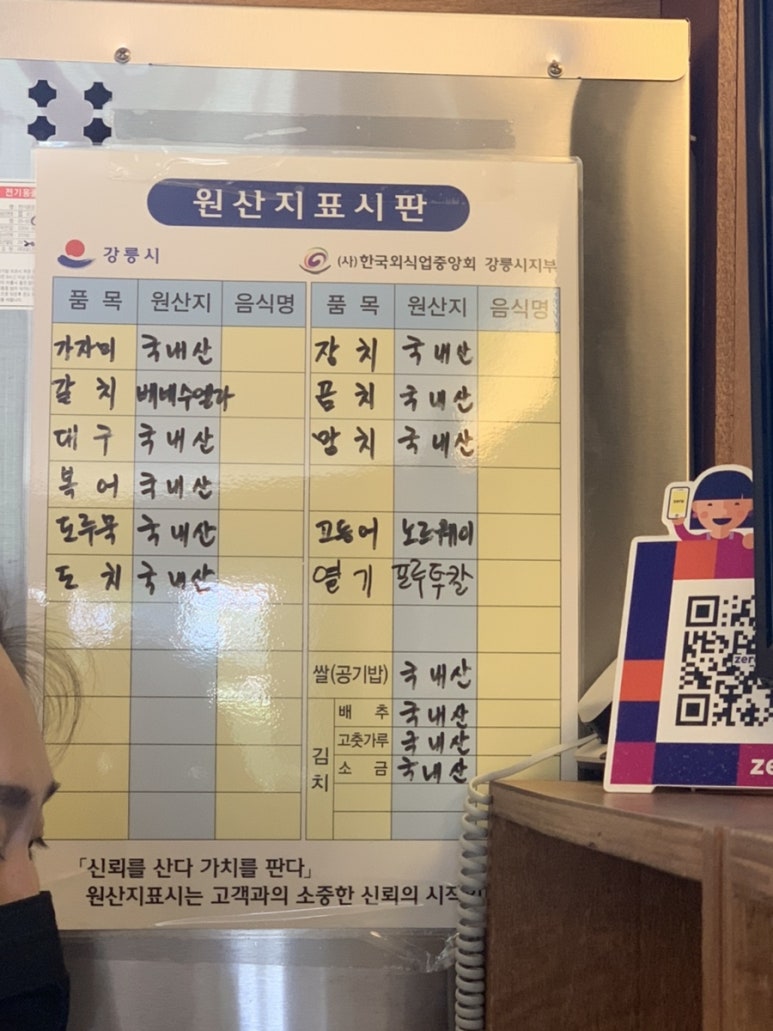 원산지표시판
강릉시
(사)한국외식업중앙회 강릉시지부
품 목 원산지 음식명
가자미 국내산
갈 치 베네수엘라
대 구 국내산
복 어 국내산
도루묵 국내산
도 치 국내산
품 목 원산지 음식명
장 치 국내산
곰 치 국내산
망 치 국내산
고등어 노르웨이
열 기 포루투칼
쌀(공기밥) 국내산
김치
배 추 국내산
고춧가루 국내산
소 금 국내산
「신뢰를 산다 가치를 판다」
원산지표시는 고객과의 소중한 신뢰의 시작
전기용
zer
ze